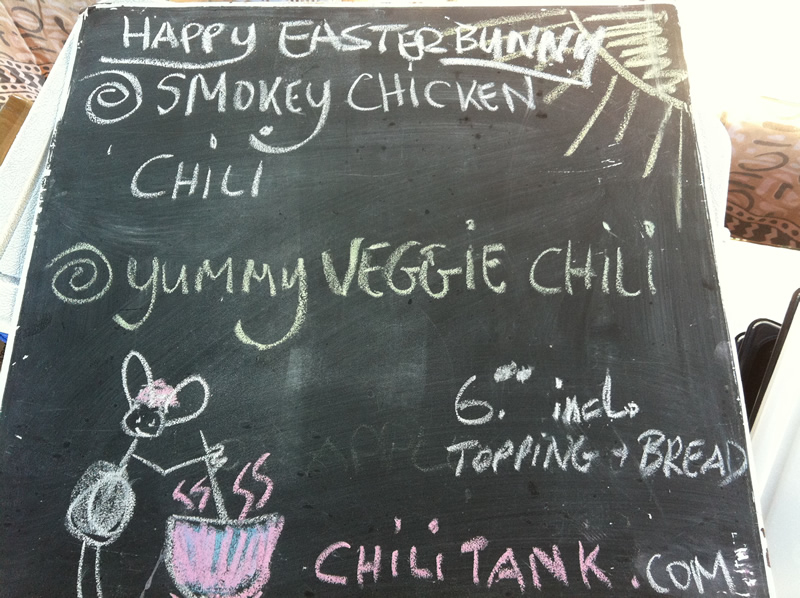 HAPPY EASTER BUNNY
SMOKEY CHICKEN
CHILI
YUMMY VEGGIE CHILI
6.⁰⁰ incl.
TOPPING + BREAD
CHILITANK.COM